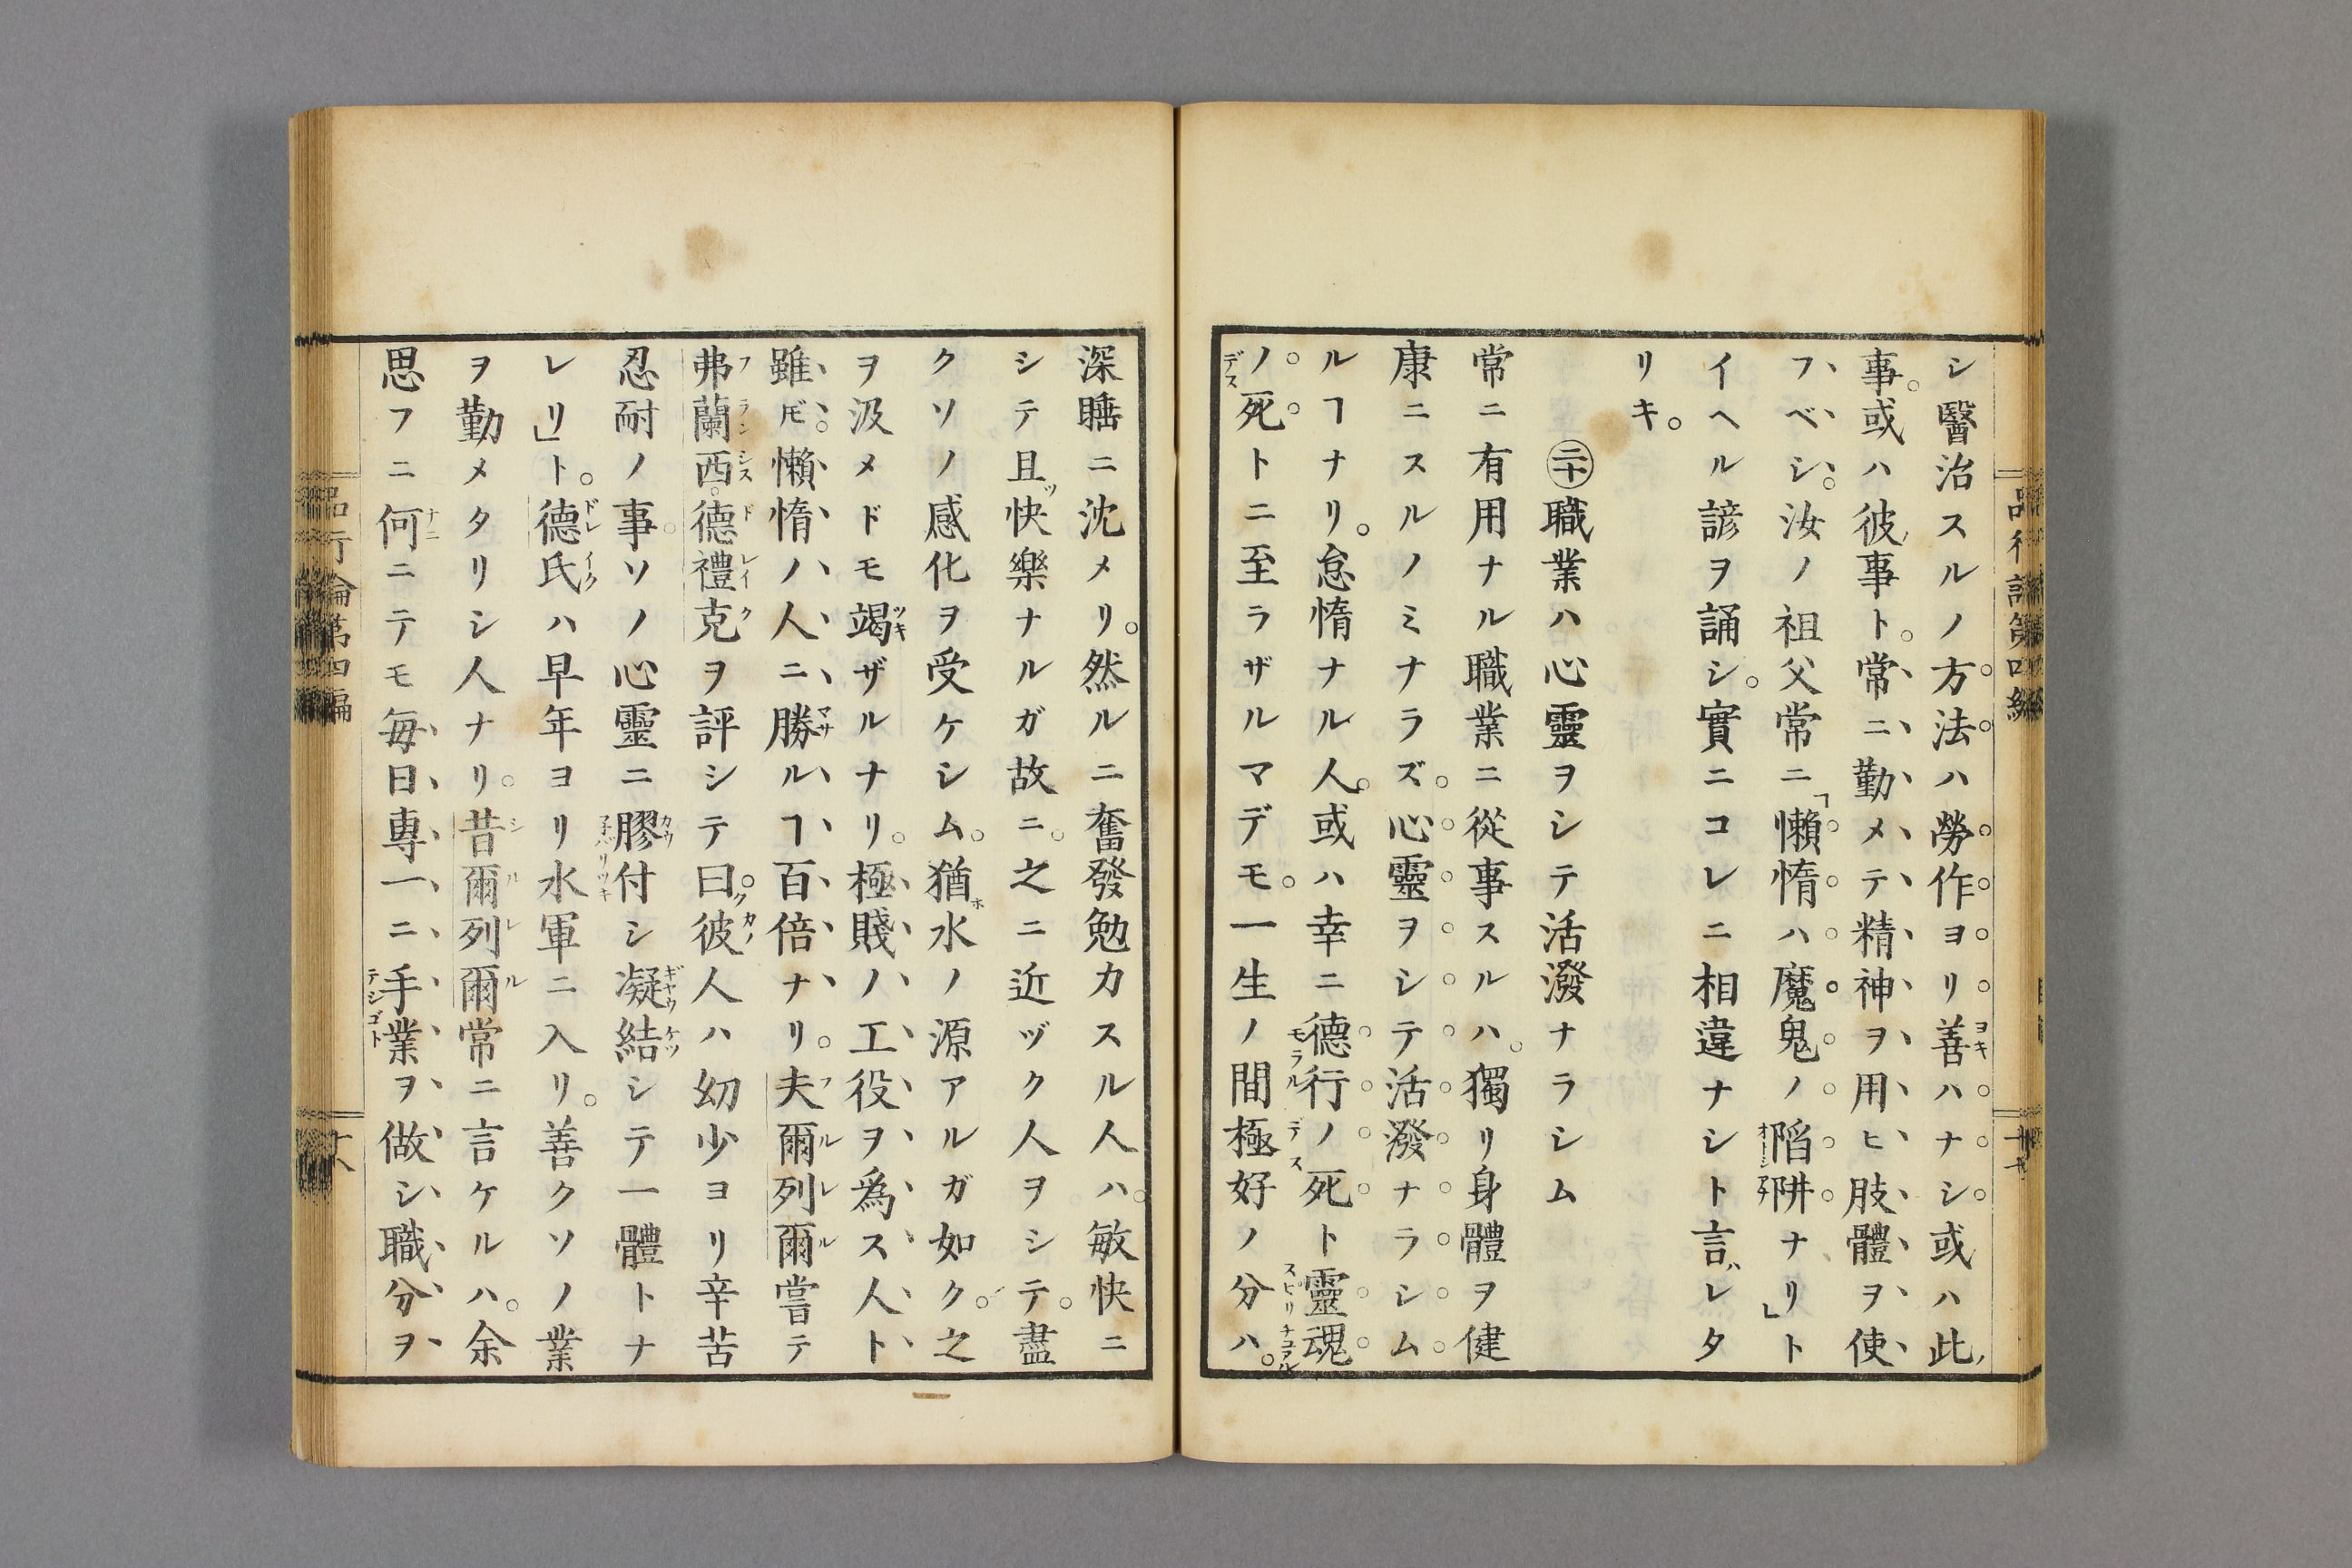 シ醫治スルノ方法ハ勞作ヨリ善ハナシ或ハ此ノ
事。或ハ彼ノ事ト。常ニ勤メテ精神ヲ用ヒ肢體ヲ使
フベシ。汝ノ祖父常ニ「懶惰ハ魔鬼ノ陷阱ナリ」ト
イヘル諺ヲ誦シ。實ニコレニ相違ナシト言ハレタ
リキ。
㊁十職業ハ心靈ヲシテ活潑ナラシム
常ニ有用ナル職業ニ從事スルハ。獨リ身體ヲ健
康ニスルノミナラズ。心靈ヲシテ活潑ナラシム
ルヿナリ。怠惰ナル人。或ハ幸ニ德行ノ死ト靈魂
ノ死トニ至ラザルマデモ。一生ノ間極好ノ分ハ。
深睡ニ沈メリ。然ルニ奮發勉力スル人ハ。敏快ニ
シテ且ツ快樂ナルガ故ニ。之ニ近ヅク人ヲシテ。盡
クソノ感化ヲ受ケシム。猶ホ水ノ源アルガ如ク。之
ヲ汲メドモ竭ザルナリ。極賤ノ工役ヲ爲ス人ト
雖ドモ。懶惰ノ人ニ勝ルヿ百倍ナリ。夫爾列爾嘗テ
弗蘭西。德禮克ヲ評シテ曰ク。彼人ハ幼少ヨリ辛苦
忍耐ノ事。ソノ心靈ニ膠付シ凝結シテ一體トナ
レリ」ト。德氏ハ早年ヨリ水軍ニ入リ。善クソノ業
ヲ勤メタリシ人ナリ。昔爾列爾常ニ言ケルハ。余
思フニ何ニテモ每日專一ニ手業ヲ做シ職分ヲ
品行論第四編
十八
品行論第四編
十七